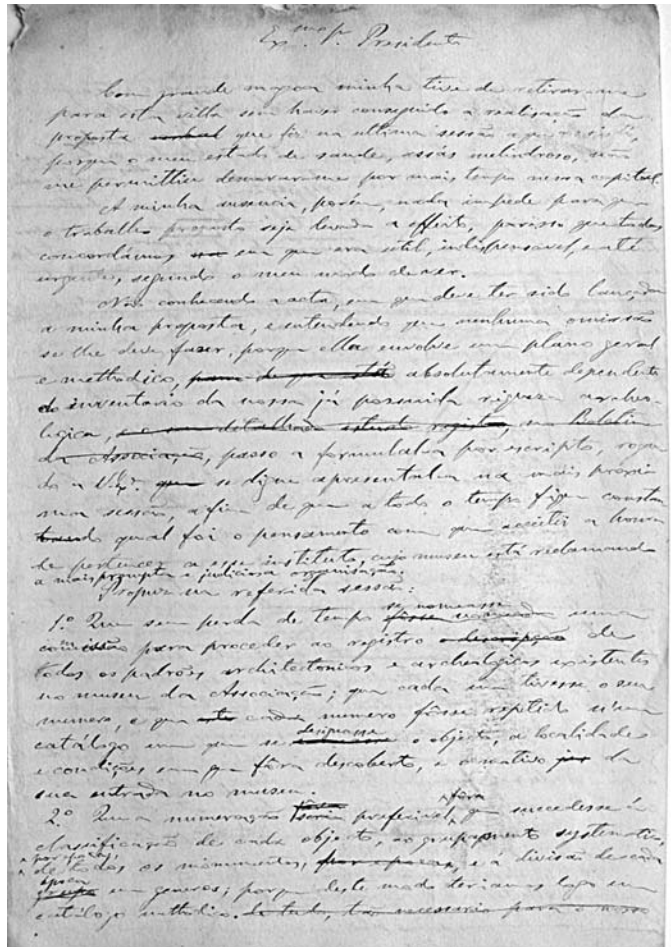 Ex.mo Sr. Presidente
Com grande magoa minha tive de retirar-me
para esta villa sem haver conseguido a realisação da
proposta verbal que fiz na ultima sessão a que assisti,
porque o meu estado de saude, assás melindroso, não
me permittiu demorar-me por mais tempo nessa capital.
A minha ausencia, porém, nada impede para que
o trabalho proposto seja levado a effeito, por isso que todos
concordámos em que era util, indispensavel, e até
urgente, segundo o meu modo de ver.
Não conhecendo a acta, em que deve ter sido lançada
a minha proposta, e entendendo que nenhuma omissão
se lhe deve fazer, porque ella envolve um plano geral
e methodico, para de que está absolutamente dependente
do inventario da nossa já possuida riqueza archeo-
logica, e o seu detalhado estudo registro, no Boletim
da Associação, passo a formulal-a por escripto, rogan
do a V. Ex.ª que se digne apresental-a na mais proxi
ma sessão, a fim de que a todo o tempo fique constan
do qual foi o pensamento com que acceitei a honra
de pertencer a esse instituto, cujo museu está reclamando
a mais prompta e judiciosa organisação.
Propuz na referida sessão:
1.º Que sem perda de tempo se nomeasse fôsse nomeada uma
comissão para proceder ao registro e descripção de
todos os padrões architectonicos e archeologicos existentes
no museu da Associação; que cada um tivesse o seu
numero, e que este cada numero fôsse repetido n'um
catálogo em que se designasse o objecto, a localidade
e condições em que fôra descoberto, e o motivo da
sua entrada no museu.
2.º Que a numeração seria preferivel fôra que succedesse á
classificação de cada objecto, ao grupamento systematico
de todos os monumentos, por epocas, e a divisão de cada
grupo epoca em generos; porque deste modo teriamos logo um
catálogo methodico. De tudo, tão necessario para o nosso